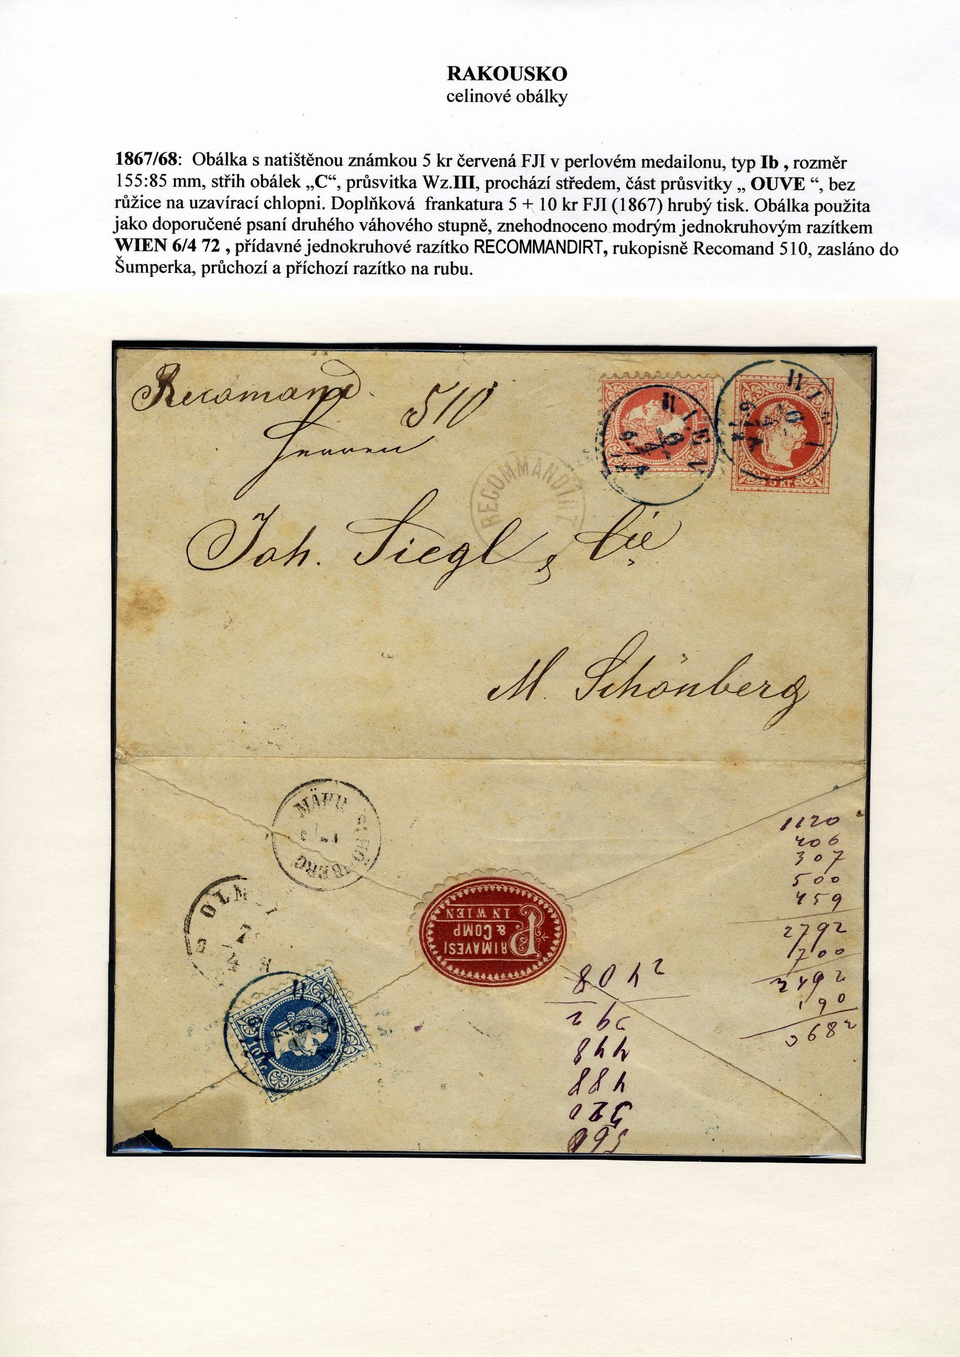 RAKOUSKO
celinové obálky
1867/68: Obálka s natištěnou známkou 5 kr červená FJI v perlovém medailonu, typ Ib , rozměr
155:85 mm, střih obálek „C“, průsvitka Wz.III, prochází středem, část průsvitky „ OUVE “, bez
růžice na uzavírací chlopni. Doplňková frankatura 5 + 10 kr FJI (1867) hrubý tisk. Obálka použita
jako doporučené psaní druhého váhového stupně, znehodnoceno modrým jednokruhovým razítkem
WIEN 6/4 72 , přídavné jednokruhové razítko RECOMMANDIRT, rukopisně Recomand 510, zasláno do
Šumperka, průchozí a příchozí razítko na rubu.
Recomand. 510
Herren
WIEN
WIEN
5 Kr.
RECOMMANDIRT
Joh. Siegl & Cie
M. Schönberg
MÄHR. SCHÖNBERG
OLM
7
4
PRIMAVESI
& COMP
IN WIEN
1120
406
307
500
459
2792
700
3492
190
3682
2408
448
488